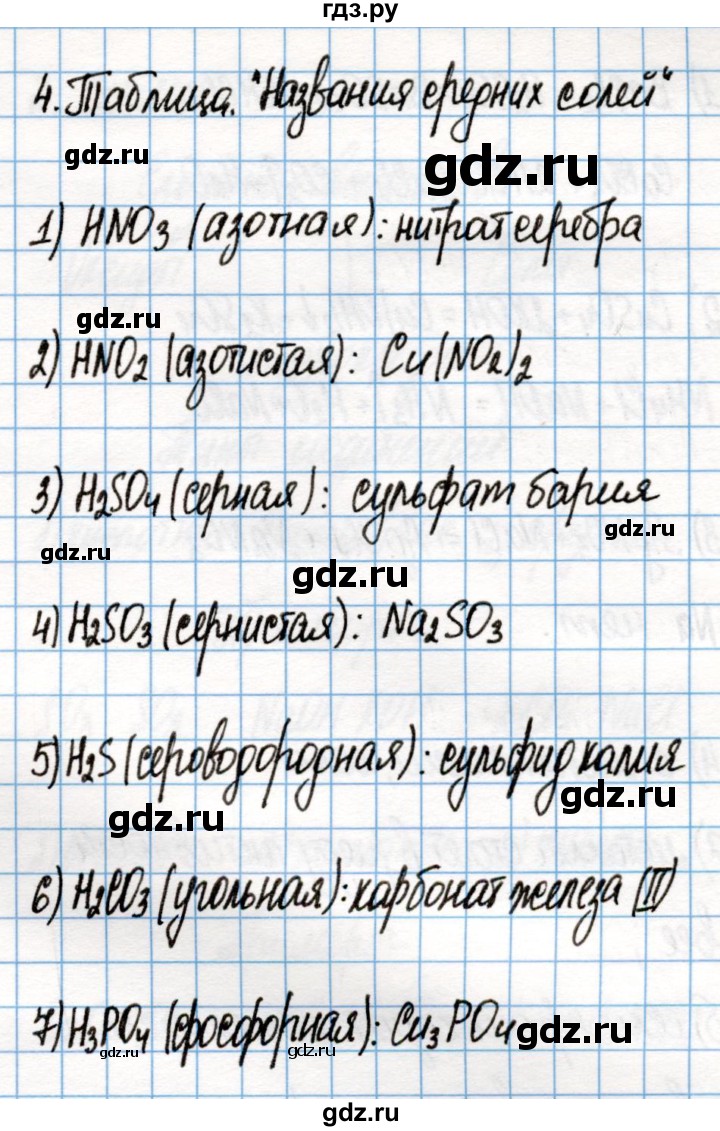 гдз.ру
4. Таблица. "Названия средних солей"
gdz.ru
gdz.ru
1) HNO3 (азотная): нитрат серебра
gdz.ru
2) HNO2 (азотистая): Cu(NO2)2
3) H2SO4 (серная): сульфат бария
gdz.ru
gdz.ru
gdz.ru
4) H2SO3 (сернистая): Na2SO3
5) H2S (сероводородная): сульфид калия
gdz.ru
gdz.ru
6) H2CO3 (угольная): карбонат железа (II)
7) H3PO4 (фосфорная): Cu3PO4
gdz.ru
gdz.ru
gdz.ru
gdz.ru